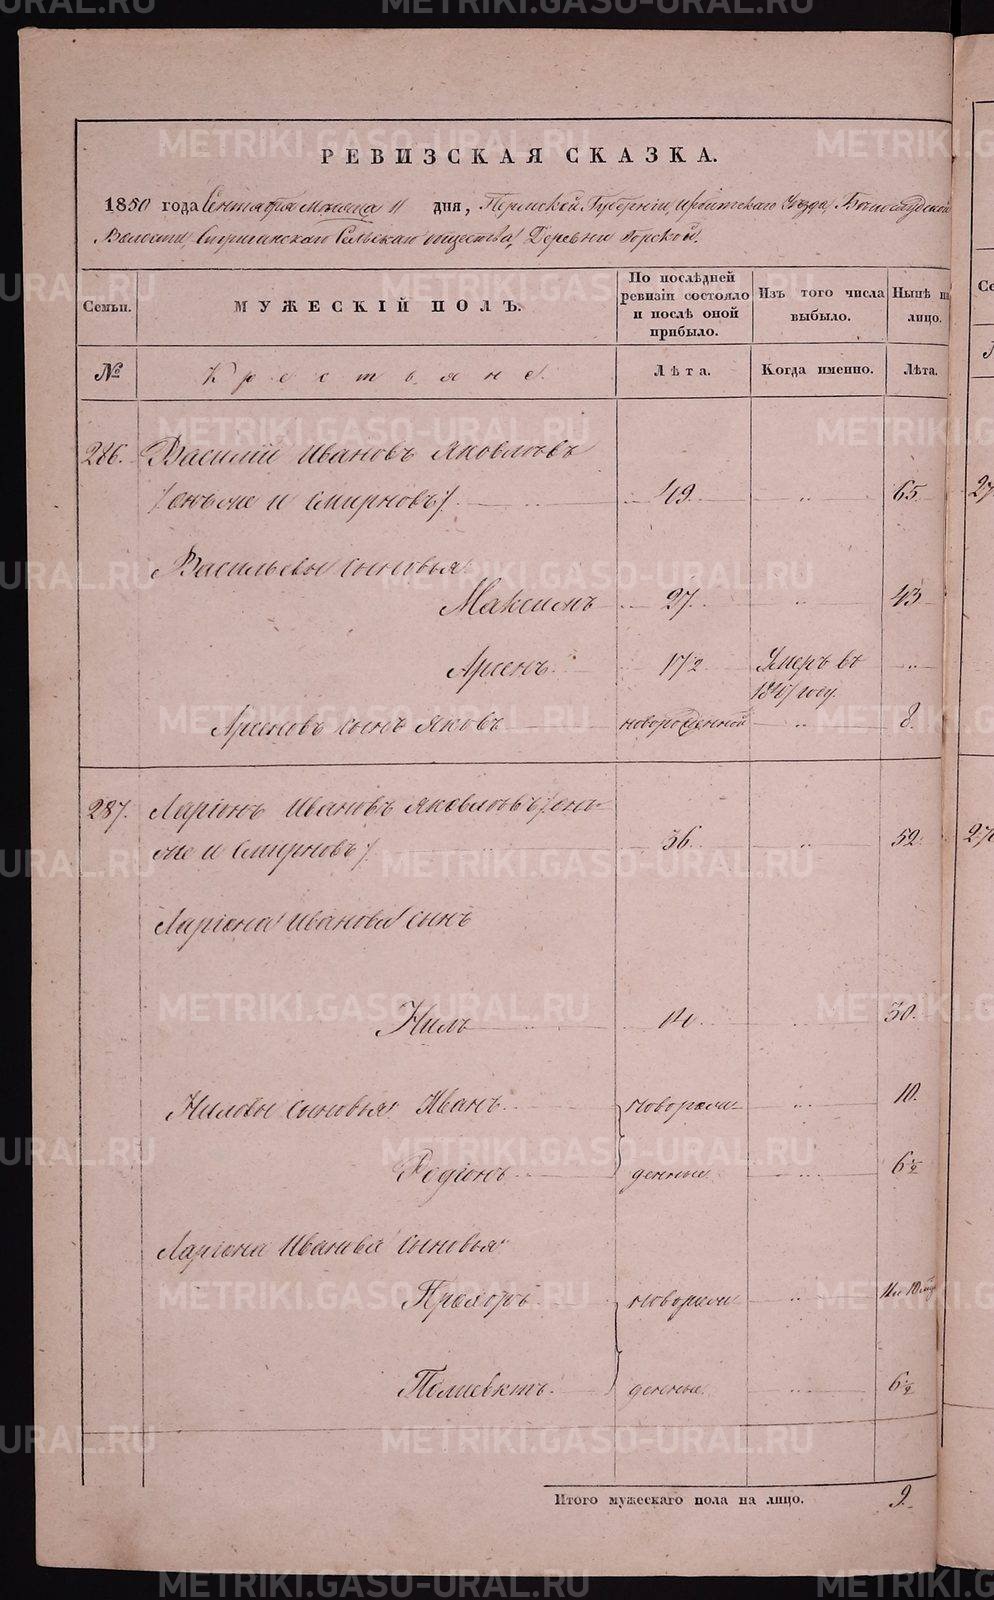 РЕВИЗСКАЯ СКАЗКА.
1850 года Сентября месяца 11 дня, Пермской Губернiи, Ирбитскаго Уѣзда,
Волости, Сельскаго общества, Деревни Горской.
Семьи.
МУЖЕСКIЙ ПОЛЪ.
По послѣдней ревизiи состояло и послѣ оной прибыло.
Изъ того числа выбыло.
Нынѣ на лицо.
№
Крестьяне.
Лѣта.
Когда именно.
Лѣта.
286. Василiй Ивановъ Яковлевъ
/онъ же и Смирновъ/ 49. " 65.
Васильевы сыновья
Максимъ 27. " 43
Арсенъ 17½ Умеръ въ "
году.
Арсеновъ сынъ Яковъ новорожденной " 8.
287. Ларiонъ Ивановъ Яковлевъ /онъ
же и Смирновъ/ 36. " 52.
Ларiона Иванова сынъ
Нилъ 14. " 30.
Ниловы сыновья Иванъ новорож- " 10.
Родiонъ денные " 6½
Ларiона Иванова сыновья
Прохоръ новорож "
Полиевктъ денные. " 6½
Итого мужескаго пола на лицо. 9.
METRIKI.GASO-URAL.RU